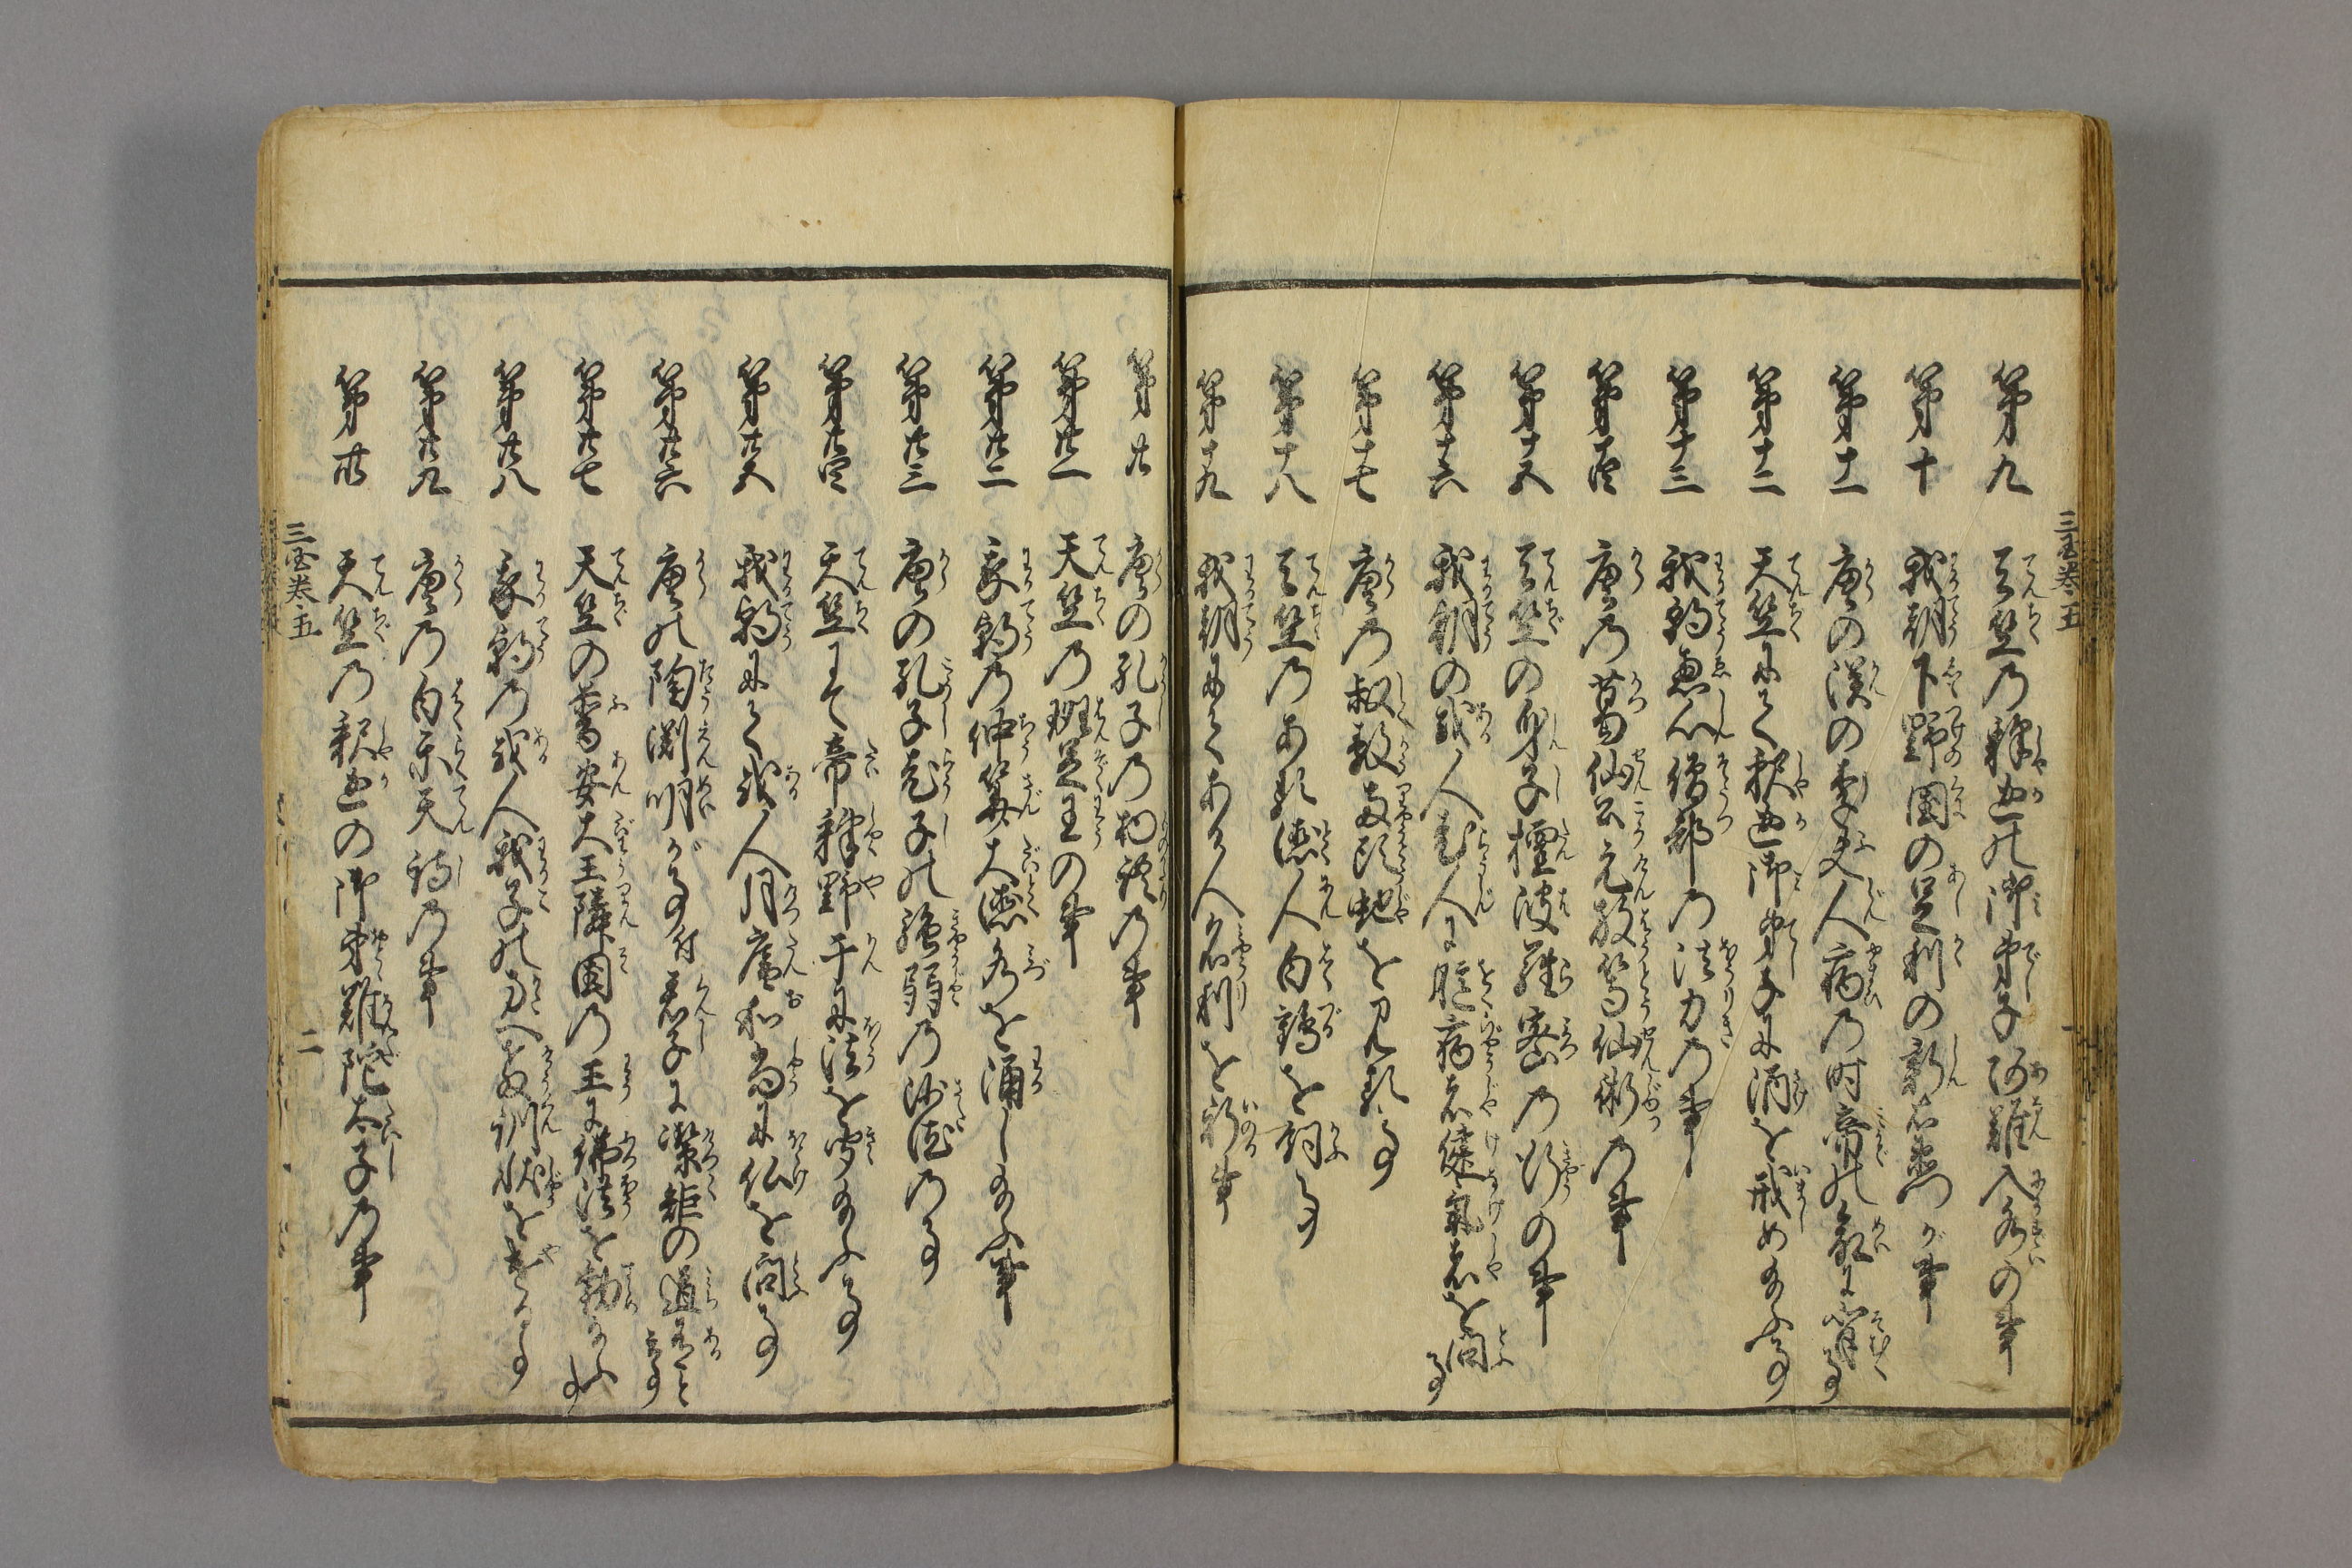 三国巻五
第九 天竺乃釋迦の御弟子阿難入水の事
第十 我朝下野国の足利の新右衛門が事
第十一 唐の漢の李夫人病乃時帝の命に背く事
第十二 天竺にて釈迦御弟子に酒を戒め給ふ事
第十三 我朝恵心僧都乃法力乃事
第十四 唐乃葛仙公元放等仙術乃事
第十五 天竺の身子檀波羅密乃行の事
第十六 我朝の或人老人に臆病者健気者を問事
第十七 唐乃叔敖両頭蛇を見る事
第十八 天竺乃ある徳人白鶴を飼事
第十九 我朝にてある人名利を祈事
第廿 唐の孔子乃物語乃事
第廿一 天竺乃斑足王の事
第廿二 我朝乃仲算大徳水を涌し給ふ事
第廿三 唐の孔子老子の強弱乃沙汰乃事
第廿四 天竺にて帝釋野干に法を聞給ふ事
第廿五 我朝にて或人月庵和尚に仏を問事
第廿六 唐の陶渕明が事付君子に潔矩の道有と云事
第廿七 天竺の普安大王隣国乃王に佛法を勧給ふ事
第廿八 我朝乃或人我子の方へ教訓状をやる事
第廿九 唐乃白楽天詩乃事
第卅 天竺乃釈迦の御弟難陀太子乃事
三国巻五
二